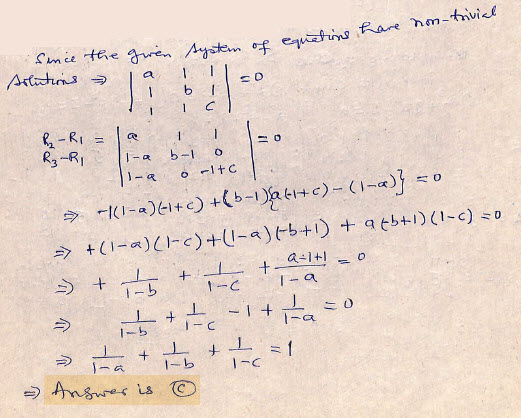 Since the given system of equations have non-trivial
solutions ⇒ | a 1 1 | = 0
| 1 b 1 |
| 1 1 c |
R₂ - R₁ = | a 1 1 | = 0
R₃ - R₁ | 1-a b-1 0 |
| 1-a 0 -1+c |
⇒ -1(1-a)(-1+c) + (b-1){a(-1+c) - (1-a)} = 0
⇒ +(1-a)(1-c) + (1-a)(-b+1) + a(-b+1)(1-c) = 0
⇒ + 1/(1-b) + 1/(1-c) + (a-1+1)/(1-a) = 0
⇒ 1/(1-b) + 1/(1-c) - 1 + 1/(1-a) = 0
⇒ 1/(1-a) + 1/(1-b) + 1/(1-c) = 1
⇒ Answer is Ⓒ